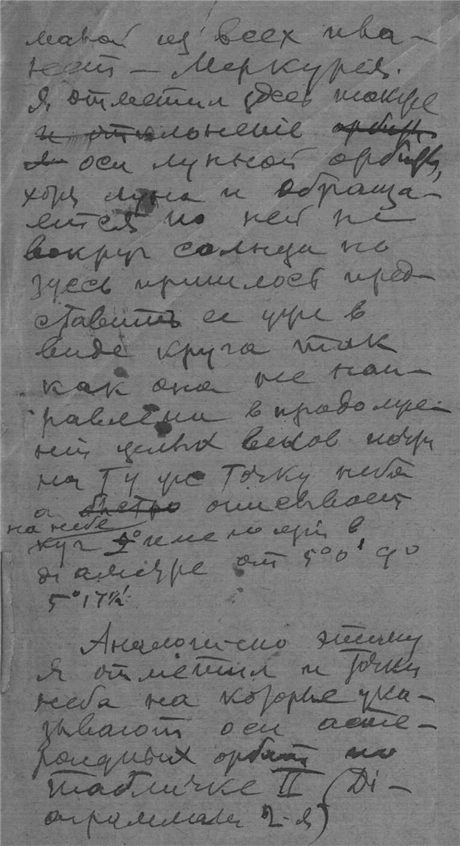 мавой из всех пла-
нет — Меркурия.
Я отметил здесь также
и отклоненіе орбиты
оси лунной орбиты,
хотя луна и обраща-
ется по ней не
вокруг солнца но
здесь пришлось пред-
ставить ее уже в
виде круга так
как она не нап-
равлена в продолже-
ніи целых веков
на ту же точку неба
а быстро описывает
на небе
круг в
діаметре от 5°0' до
5°17½'
Аналогично этому
я отметил и точки
неба на которые ука-
зывают оси асте-
роидных орбит на
табличке II (Ді-
аграмма 2-я)